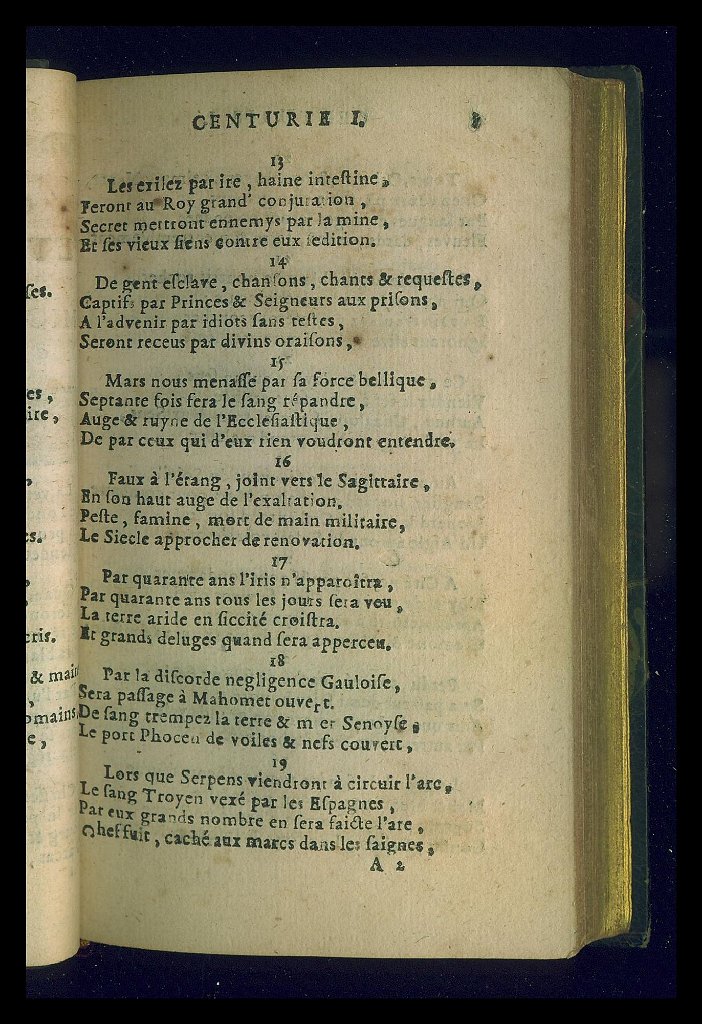 CENTURIE I.
13
Les exilez par ire, haine intestine,
Feront au Roy grand' conjuration,
Secret mettront ennemys par la mine,
Et ses vieux siens contre eux sedition.
14
De gent esclave, chansons, chants & requestes,
Captifs par Princes & Seigneurs aux prisons,
A l'advenir par idiots sans testes,
Seront receus par divins oraisons,
15
Mars nous menasse par sa force bellique,
Septante fois fera le sang répandre,
Auge & ruyne de l'Ecclesiastique,
De par ceux qui d'eux rien voudront entendre.
16
Faux à l'étang, joint vers le Sagittaire,
En son haut auge de l'exaltation.
Peste, famine, mort de main militaire,
Le Siecle approcher de renovation.
17
Par quarante ans l'iris n'apparoîtra,
Par quarante ans tous les jours sera veu,
La terre aride en siccité croistra.
Et grands deluges quand sera apperceu.
18
Par la discorde negligence Gauloise,
Sera passage à Mahomet ouvert.
De sang trempez la terre & mer Senoyse,
Le port Phoceu de voiles & nefs couvert,
19
Lors que Serpens viendront à circuir l'arc,
Le sang Troyen vexé par les Espagnes,
Par eux grands nombre en sera faicte l'are,
Chef fuit, caché aux marcs dans les saignes,
A 2
ses.
es,
ire,
s.
cris.
& main
omains,
e,